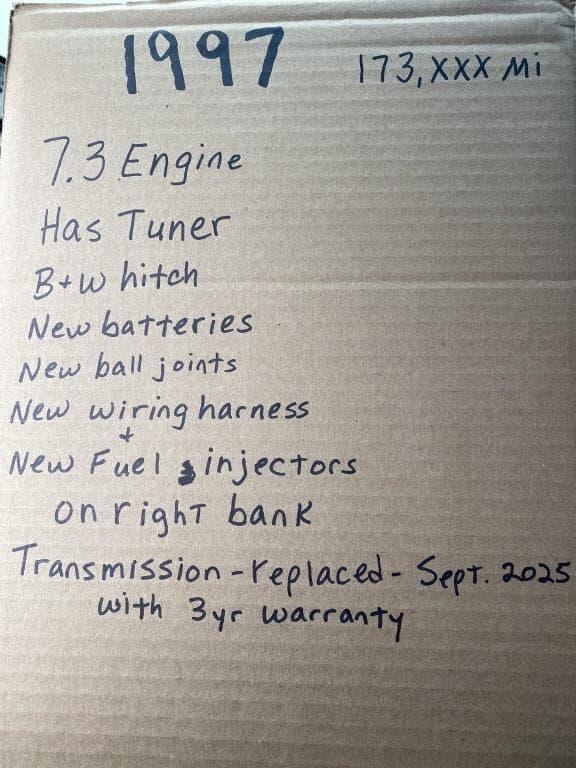 1997 173,XXX Mi
7.3 Engine
Has Tuner
B+W hitch
New batteries
New ball joints
New wiring harness
+
New Fuel injectors
on right bank
Transmission - replaced - Sept. 2025
with 3yr warranty